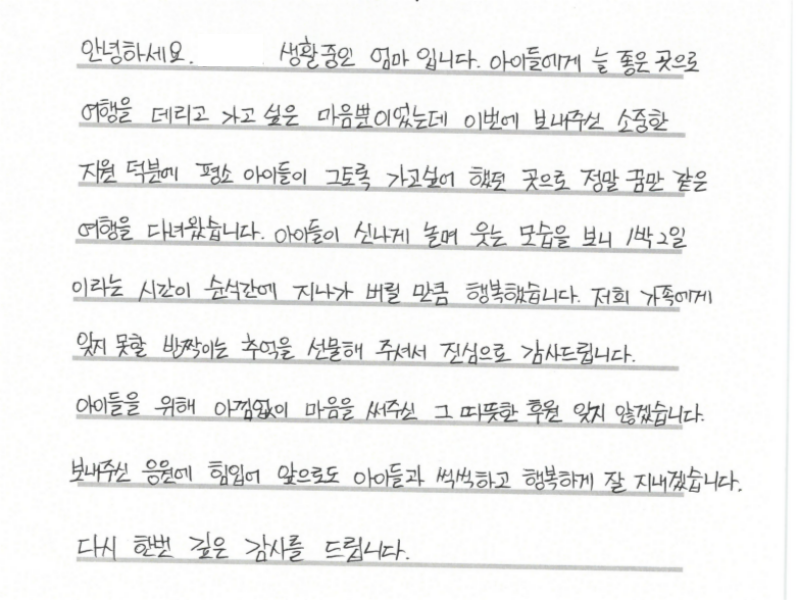 안녕하세요. 생활중인 엄마 입니다. 아이들에게 늘 좋은 곳으로
여행을 데리고 가고 싶은 마음뿐이었는데 이번에 보내주신 소중한
지원 덕분에 평소 아이들이 그토록 가고싶어 했던 곳으로 정말 꿈만 같은
여행을 다녀왔습니다. 아이들이 신나게 놀며 웃는 모습을 보니 1박2일
이라는 시간이 순식간에 지나가 버릴 만큼 행복했습니다. 저희 가족에게
잊지 못할 반짝이는 추억을 선물해 주셔서 진심으로 감사드립니다.
아이들을 위해 아낌없이 마음을 써주신 그 따뜻한 후원 잊지 않겠습니다.
보내주신 응원에 힘입어 앞으로도 아이들과 씩씩하고 행복하게 잘 지내겠습니다.
다시 한번 깊은 감사를 드립니다.